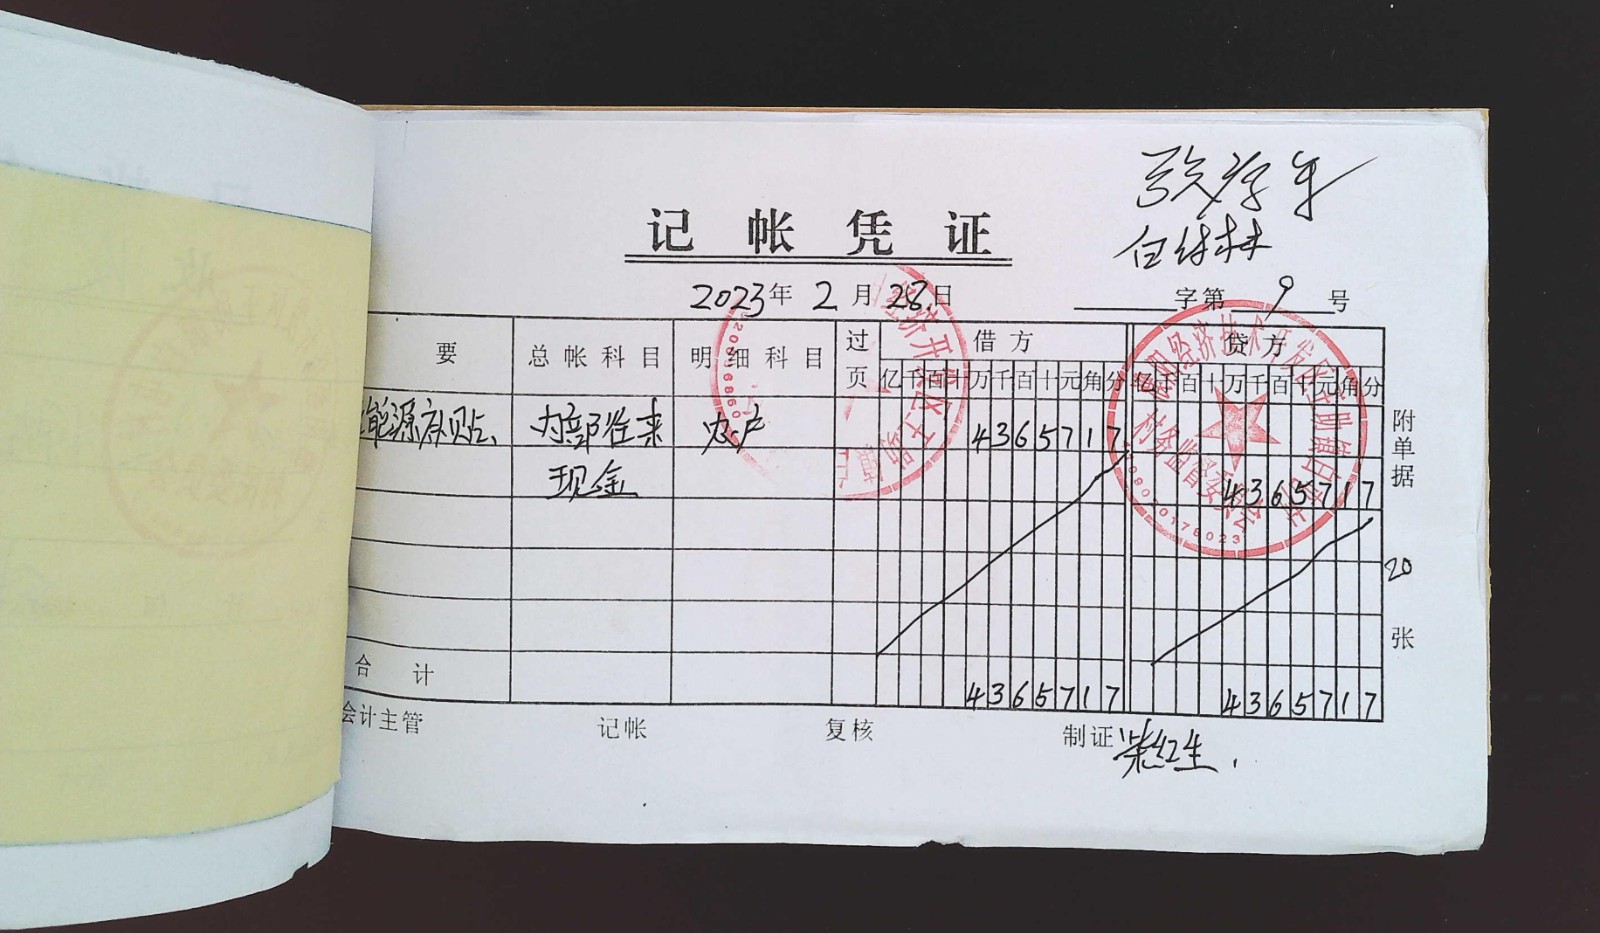 记帐凭证
2023年 2月 28日
字第 9 号
要 总帐科目 明细科目 过页 借方 贷方
亿千百十万千百十元角分 亿千百十万千百十元角分
能源 贴 内部往来 农户 4365717
现金 4365717
合计 4365717 4365717
附单据 20 张
会计主管 记帐 复核 制证 柴红生